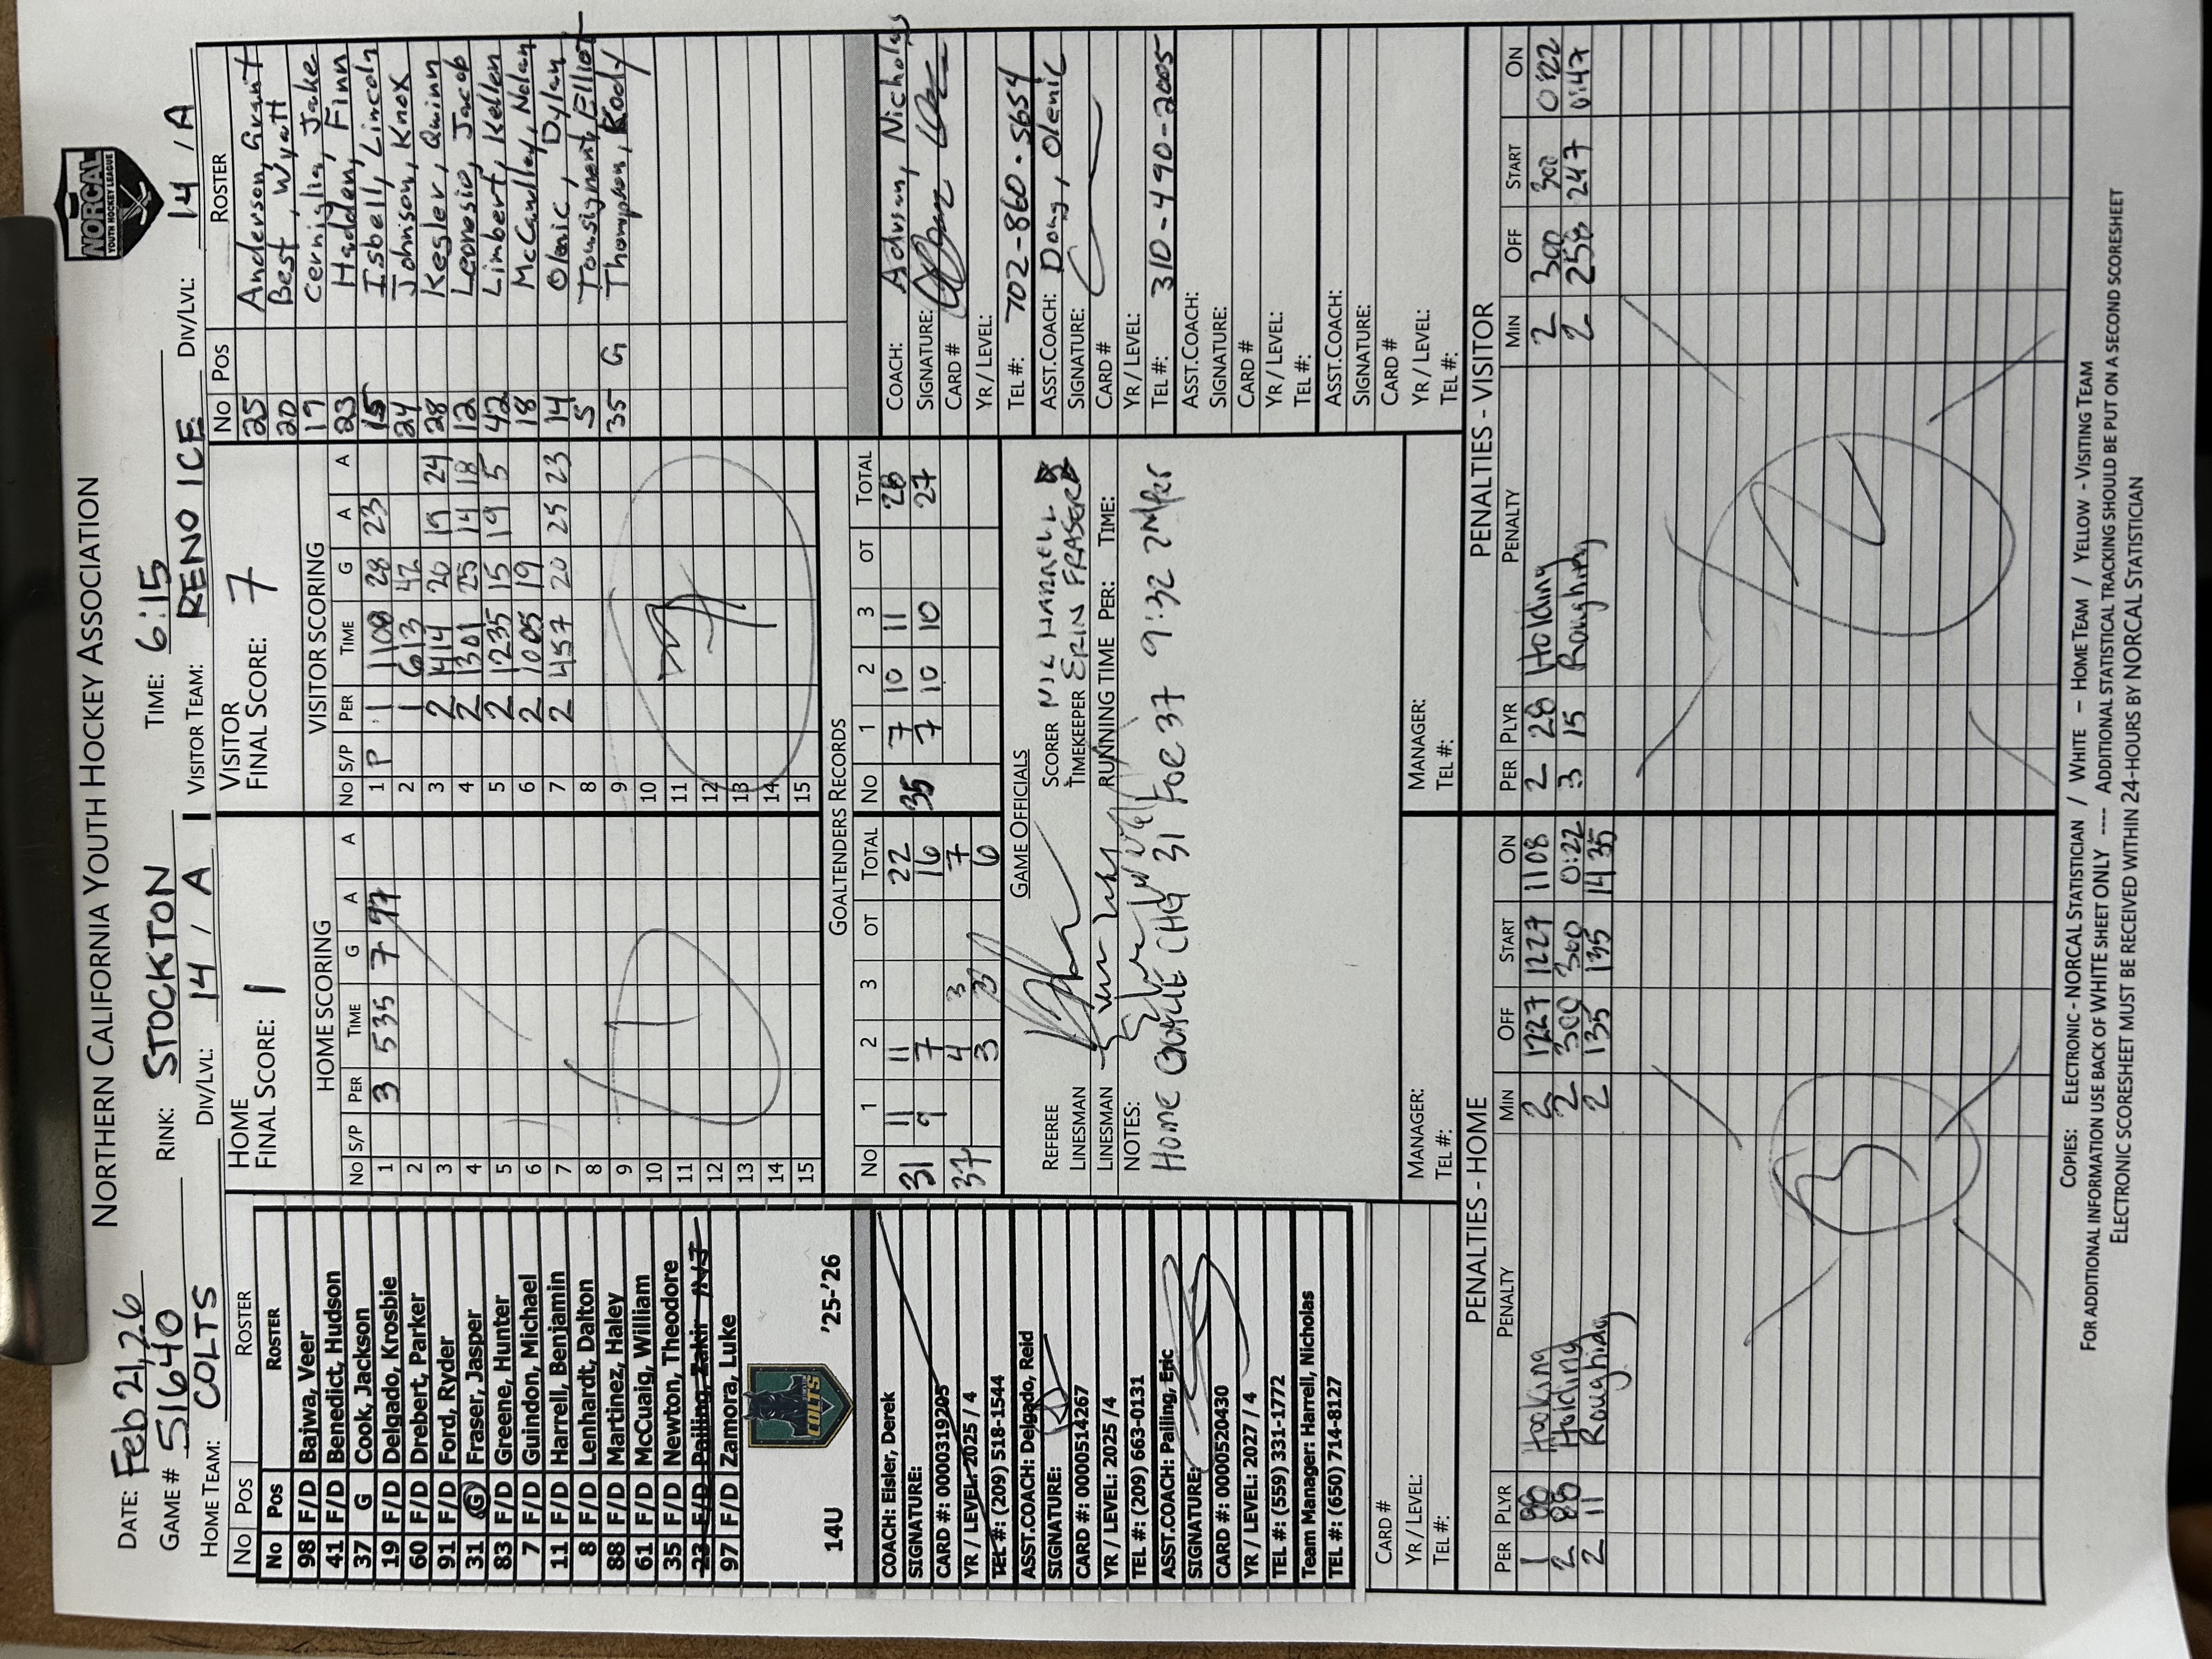 NORTHERN CALIFORNIA YOUTH HOCKEY ASSOCIATION
NORCAL
YOUTH HOCKEY LEAGUE
DATE: Feb 21, 26 RINK: STOCKTON TIME: 6:15
GAME # 51640 DIV/LVL: 14 / A VISITOR TEAM: RENO ICE DIV/LVL: 14 / A
HOME TEAM: COLTS
HOME FINAL SCORE: 1
VISITOR FINAL SCORE: 7
NO POS ROSTER
No Pos ROSTER
98 F/D Bajwa, Veer
41 F/D Benedict, Hudson
37 G Cook, Jackson
19 F/D Delgado, Krosbie
60 F/D Drebert, Parker
91 F/D Ford, Ryder
31 G Fraser, Jasper
83 F/D Greene, Hunter
7 F/D Guindon, Michael
11 F/D Harrell, Benjamin
8 F/D Lenhardt, Dalton
88 F/D Martinez, Haley
61 F/D McCuaig, William
35 F/D Newton, Theodore
23 F/D Pailing, Zakir INJ
97 F/D Zamora, Luke
14U COLTS '25-'26
COACH: Eisler, Derek
SIGNATURE:
CARD #: 0000319205
YR / LEVEL: 2025 / 4
TEL #: (209) 518-1544
ASST.COACH: Delgado, Reid
SIGNATURE:
CARD #: 0000514267
YR / LEVEL: 2025 /4
TEL #: (209) 663-0131
ASST.COACH: Pailing, Eric
SIGNATURE:
CARD #: 0000520430
YR / LEVEL: 2027 / 4
TEL #: (559) 331-1772
Team Manager: Harrell, Nicholas
TEL #: (650) 714-8127
CARD #
YR / LEVEL:
TEL #:
HOME SCORING
NO S/P PER TIME G A A
1 3 535 7 97
2
3
4
5
6
7
8
9
10
11
12
13
14
15
1
VISITOR SCORING
NO S/P PER TIME G A A
1 P 1 1108 28 23
2 1 613 42
3 2 1414 20 19 24
4 2 1301 25 14 18
5 2 1235 15 19 5
6 2 1005 19
7 2 457 20 25 23
8
9
10
11
12
13
14
15
7
GOALTENDERS RECORDS
NO 1 2 3 OT TOTAL NO 1 2 3 OT TOTAL
31 11 11 22 35 7 10 11 28
9 7 16 7 10 10 27
37 4 3 7
3 6
GAME OFFICIALS
REFEREE SCORER
LINESMAN TIMEKEEPER ERIN FRASER
LINESMAN RUNNING TIME PER: TIME:
NOTES:
Home GOALIE CHG 31 FOR 37 9:32 2nd Per
MANAGER: MANAGER:
TEL #: TEL #:
NO POS ROSTER
25 Anderson, Grant
20 Best, Wyatt
19 Cerniglia, Jake
23 Hadden, Finn
15 Isbell, Lincoln
24 Johnson, Knox
28 Kesler, Quinn
12 Leonosio, Jacob
42 Limbert, Kellen
18 McCandley, Nolan
14 Olenic, Dylan
5 Tousignant, Elliot
35 G Thompson, Kody
COACH: Adrson, Nicholas
SIGNATURE:
CARD #
YR / LEVEL:
TEL #: 702-860-5654
ASST.COACH: Doug, Olenic
SIGNATURE:
CARD #
YR / LEVEL:
TEL #: 310-490-2005
ASST.COACH:
SIGNATURE:
CARD #
YR / LEVEL:
TEL #:
ASST.COACH:
SIGNATURE:
CARD #
YR / LEVEL:
TEL #:
PENALTIES - HOME
PER PLYR PENALTY MIN OFF START ON
1 88 Hooking 2 1227 1227 1108
2 88 Holding 2 300 300 0:22
2 11 Roughing 2 135 135 1435
3
PENALTIES - VISITOR
PER PLYR PENALTY MIN OFF START ON
2 28 Holding 2 300 300 0:22
3 15 Roughing 2 258 247 0:47
2
COPIES: ELECTRONIC - NORCAL STATISTICIAN / WHITE – HOME TEAM / YELLOW - VISITING TEAM
FOR ADDITIONAL INFORMATION USE BACK OF WHITE SHEET ONLY ---- ADDITIONAL STATISTICAL TRACKING SHOULD BE PUT ON A SECOND SCORESHEET
ELECTRONIC SCORESHEET MUST BE RECEIVED WITHIN 24-HOURS BY NORCAL STATISTICIAN